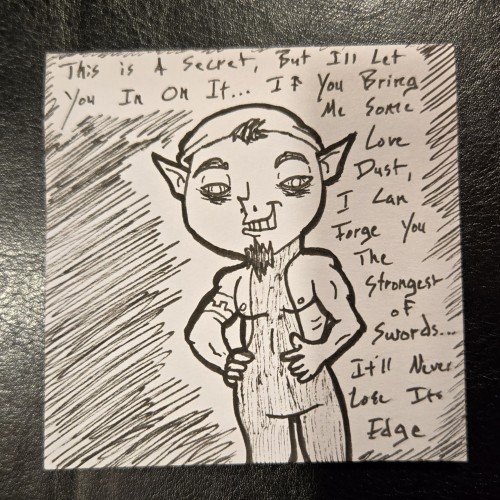 This is A Secret, But I'll Let
You In On It... If You Bring
Me Some
Love
Dust,
I Can
Forge You
The
Strongest
of
Swords...
It'll Never
Lose Its
Edge